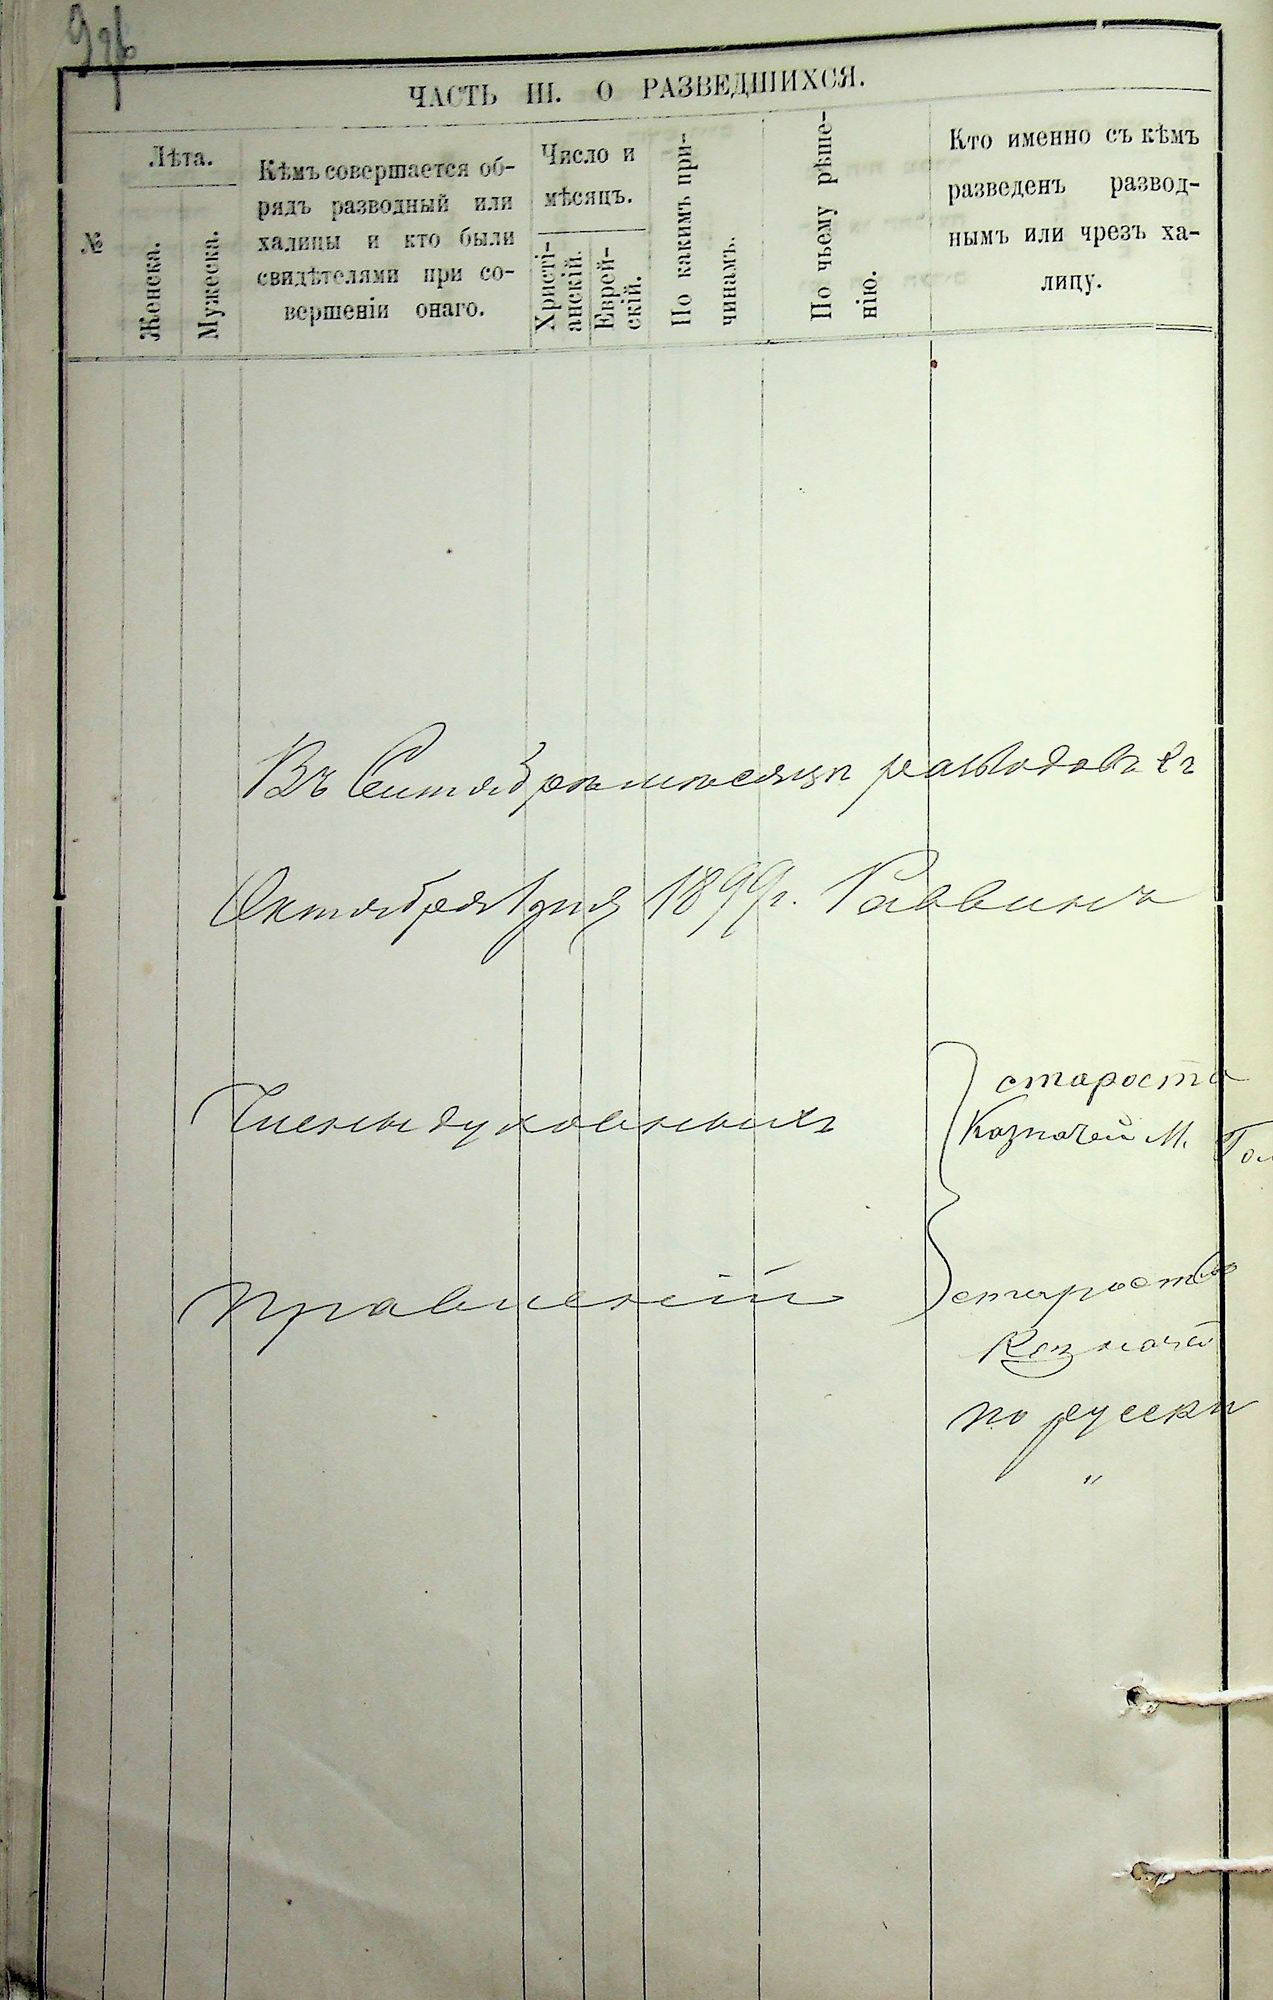 ЧАСТЬ III. О РАЗВЕДШИХСЯ.
№
Лѣта.
Женска.
Мужеска.
Кѣмъ совершается об-
рядъ разводный или
халицы и кто были
свидѣтелями при со-
вершеніи онаго.
Число и
мѣсяцъ.
Христі-
анскій.
Еврей-
скій.
По какимъ при-
чинамъ.
По чьему рѣше-
нію.
Кто именно съ кѣмъ
разведенъ развод-
нымъ или чрезъ ха-
лицу.
Въ Сентябрѣ мѣсяцѣ разводовъ
Октября 1 дня 1899 г. Раввинъ
Члены духовныхъ
правленій
староста
Казначей М.
староста
Казначей
по русски
"